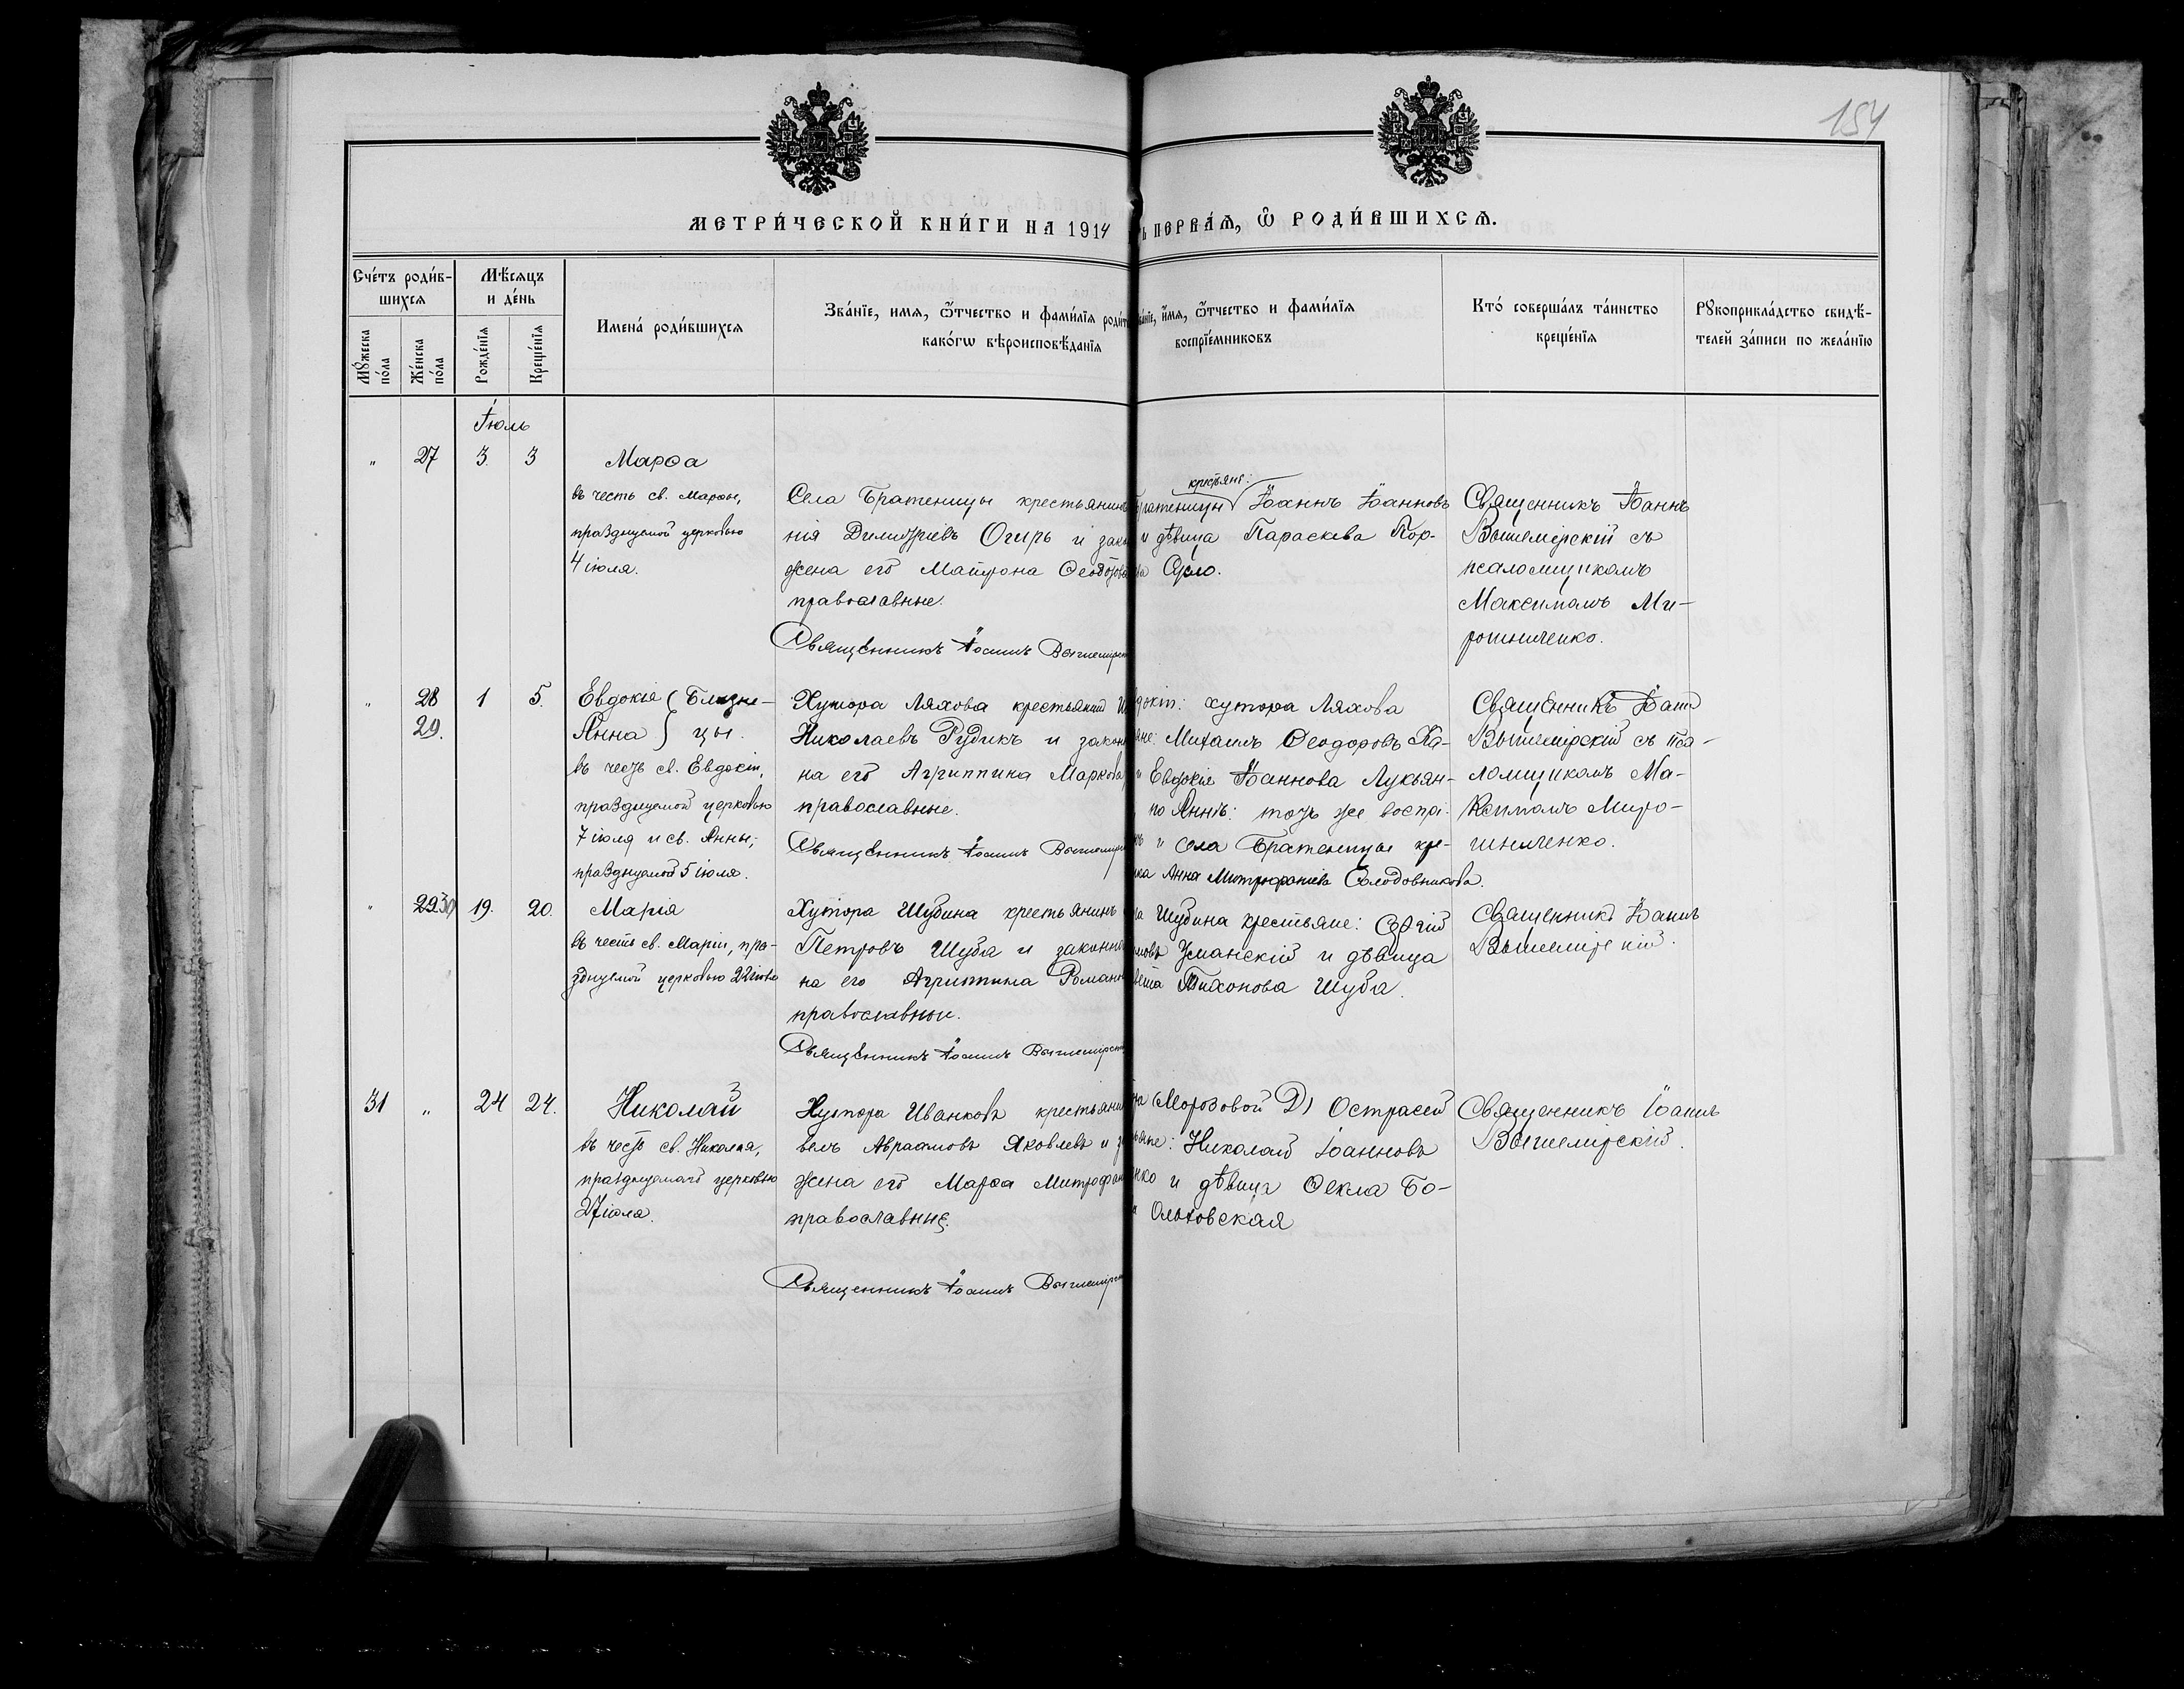 154
МЕТРИ́ЧЕСКОЙ КНИ́ГИ НА 1914
Ь ПЕРВА́Ѧ, Ѿ РОДИ́ВШИХСѦ.
Сче́тъ роди́в-
шихсѧ
Мѣ́сѧцъ
и де́нь
Мꙋ́жеска по́ла
Же́нска по́ла
Рожде́нїѧ
Креще́нїѧ
Имена̀ роди́вшихсѧ
Зва́нїе, имѧ, ѻ҆́тчество и фами́лїѧ роди́т
како́гѡ вѣроисповѣ́данїѧ
ва́нїе, и҆́мѧ, ѻ҆́тчество и фами́лїѧ
воспрїе́мниковъ
Кто́ соверша́лъ та́инство
креще́нїѧ
Рꙋкоприкла́дство свидѣ́-
телей за́писи по жела́нїю
Іюль
" 27 3. 3
Марѳа
въ честь св. Марѳы,
празднуемой церковью
4 іюля.
Села Братеницы крестьянинъ
нія Димитріевъ Огирь и зако
жена его Матрона Ѳеодорова
православные.
Священникъ Іоаннъ Вышемирск
крестьяне:
Братеницы Іоаннъ Іоанновъ
и дѣвица Параскева Пор-
ва Сусло.
Священникъ Іоаннъ
Вышемірскій съ
псаломщикомъ
Максимомъ Ми-
рошниченко.
" 28 1 5.
29.
Евдокія (Близне-
Анна } цы.
въ честь св. Евдокіи,
празднуемой церковью
7 іюля и св. Анны,
празднуемой 5 іюля.
Хутора Ляхова крестьянин И
Николаевъ Рудикъ и законн
на его Агриппина Маркова
православные.
Священникъ Іоаннъ Вышемирс
докіи: хутора Ляхова
яне: Михаилъ Ѳеодоровъ Ка-
и Евдокія Іоаннова Лукьян-
по Аннѣ: тотъ же воспрі-
къ и села Братеницы кре-
ка Анна Митрофаніева Солодовникова.
Священникъ Іоанн
Вышемірскій съ пса-
ломщикомъ Ма-
ксимомъ Миро-
шниченко.
" 29 30 19. 20.
Марія
въ честь св. Маріи, пра-
зднуемой церковью 22 іюля
Хутора Шубина крестьянинъ
Петровъ Шуба и законна
на его Агриппина Романо
православные.
Священникъ Іоаннъ Вышемирск
ра Шубина крестьяне: Сергій
мовъ Усманскій и дѣвица
вета Тихонова Шуба.
Священникъ Іоаннъ
Вышемірскій.
31 " 24 24.
Николай
въ честь св. Николая,
празднуемаго церковью
27 іюля.
Хутора Иванковъ крестьянин
велъ Авраамовъ Яковлевъ и за
жена его Марѳа Митрофан
православные.
Священникъ Іоаннъ Вышемирск
на (Морозовой Д) Острасей
ьяне: Николай Іоанновъ
нко и дѣвица Ѳекла Бо-
Ольховская
Священникъ Іоаннъ
Вышемірскій.